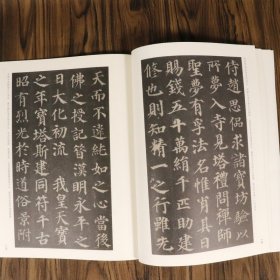 侍趙思偘求諸寶坊驗以
所夢入寺見塔禮問禪師
聖夢有孚法名惟肖其日
賜錢五十萬絹千匹助建
修也則知精一之行雖先
天而不違純如之心當後
佛之授記昔漢明永平之
日大化初流我皇天寶
之年寶塔斯建同符千古
昭有烈光於時道俗景附